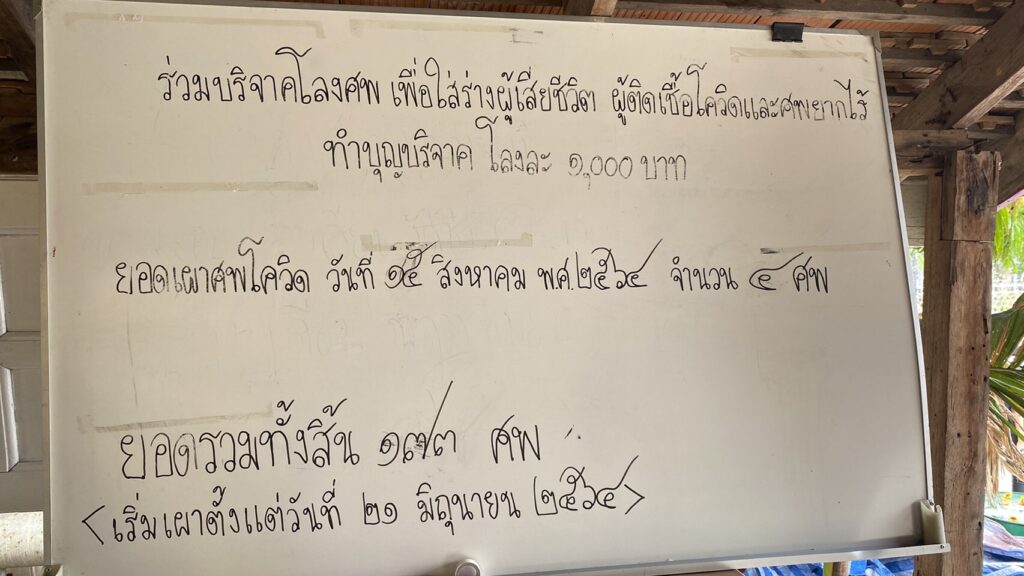 ร่วมบริจาคโลงศพ เพื่อใส่ร่างผู้เสียชีวิต ผู้ติดเชื้อโควิดและศพยากไร้
ทำบุญบริจาค โลงละ ๑,๐๐๐ บาท
ยอดเผาศพโควิด วันที่ ๑๕ สิงหาคม พ.ศ.๒๕๖๔ จำนวน ๔ ศพ
ยอดรวมทั้งสิ้น ๑๗๓ ศพ
<เริ่มเผาตั้งแต่วันที่ ๒๑ มิถุนายน ๒๕๖๔>